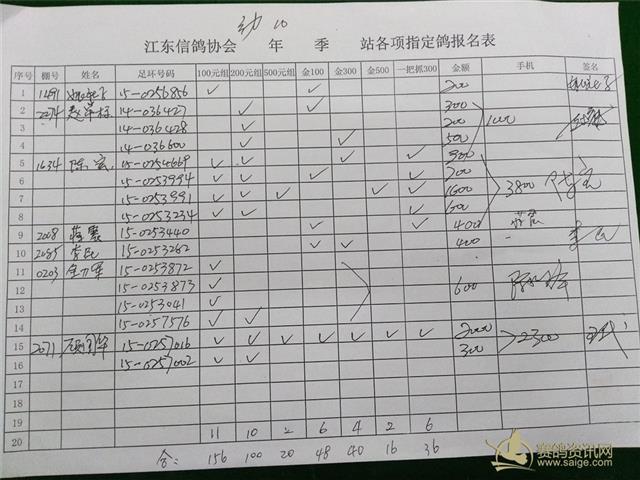 幼10
江东信鸽协会 年 季 站各项指定鸽报名表
序号 棚号 姓名 足环号码 100元组 200元组 500元组 金100 金300 金500 一把抓300 金额 手机 签名
1 1491 15-0256856 ✓ ✓ 200
2 2274 14-036427 ✓ ✓ 300
3 14-036428 ✓ 200 1000
4 14-036600 ✓ ✓ 500
5 1634 陈宏 15-0254669 ✓ ✓ ✓ ✓ 900
6 15-0253994 ✓ ✓ ✓ ✓ 700
7 15-0253991 ✓ ✓ ✓ ✓ ✓ 1600 3800
8 15-0253234 ✓ ✓ ✓ 600
9 2008 蒋震 15-0253440 ✓ ✓ 400
10 2085 李民 15-0253262 ✓ ✓ 400
11 0203 15-0253872 ✓
12 15-0253873 ✓ 600
13 15-0253041 ✓
14 15-0257576 ✓ ✓
15 2071 15-0257016 ✓ ✓ ✓ ✓ ✓ ✓ ✓ 2000 2300
16 15-0257002 ✓ ✓ 300
17
18
19
20 11 10 2 6 4 2 6
含: 156 100 20 48 40 16 36
赛鸽资讯网
www.saige.com